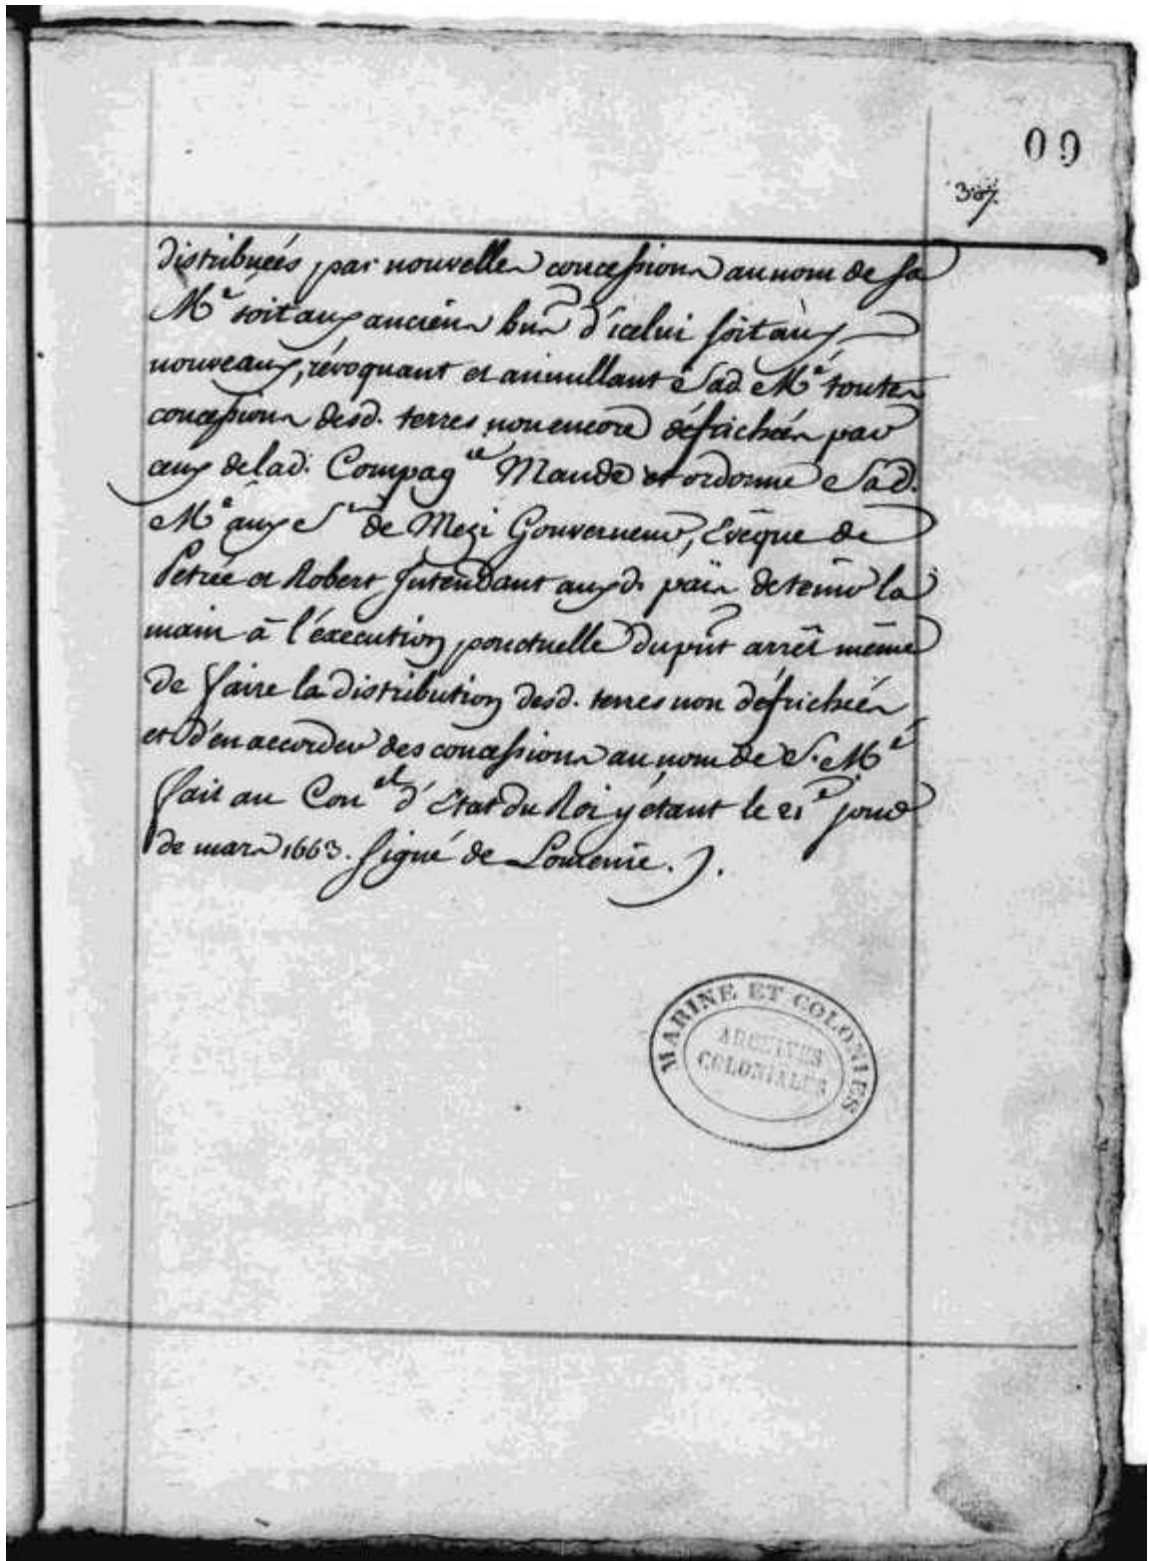 09
307.
distribuées par nouvelles concessions au nom de Sa
M.e soit aux anciens d'icelui soit aux
nouveaux, révoquant et annullant Sad. M.e toutes
concessions desd. terres non encore défrichées par
ceux de lad. Compag.ie Mande et ordonne Sad.
M.e aux S.rs de Mezi Gouverneur, Evêque de
Petrée et Robert Intendant auxd. païs de tenir la
main à l'éxecution ponctuelle du pnt arrêt même
de faire la distribution desd. terres non défrichées
et d'en accorder des concessions au nom de S. M.é
fait au Con.el d'Etat du Roi y étant le 21.e jour
de mars 1663. Signé de Lomenie. ).
MARINE ET COLONIES
ARCHIVES
COLONIALES